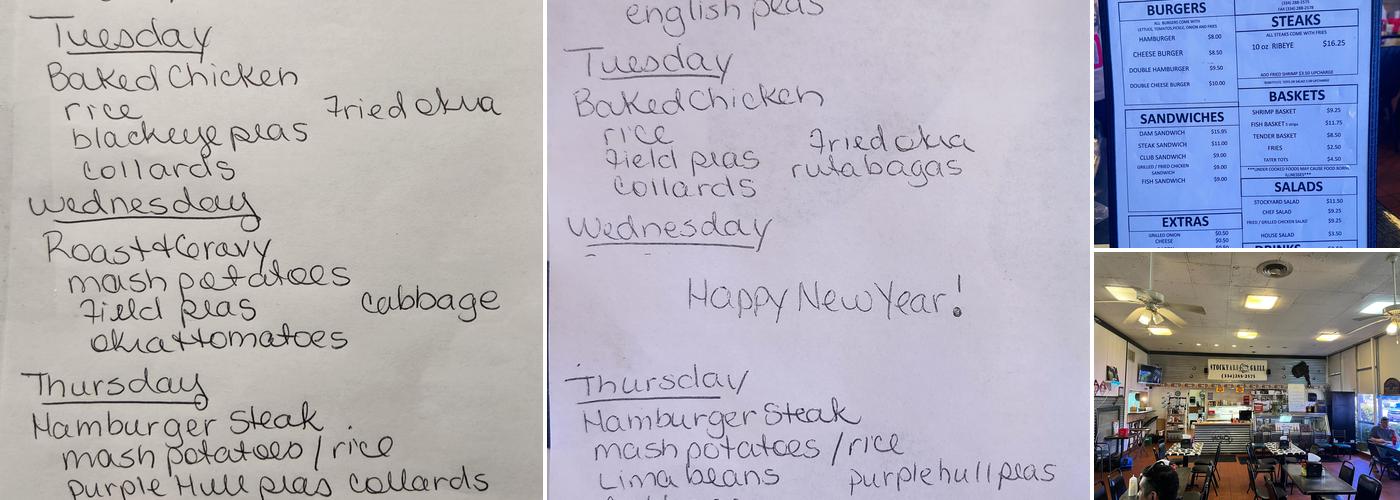 Tuesday
Baked Chicken
rice
Fried okra
blackeye peas
collards
Wednesday
Roast & Gravy
mash potatoes
Field peas
cabbage
okra + tomatoes
Thursday
Hamburger Steak
mash potatoes / rice
purple Hull peas collards
english peas
Tuesday
Baked Chicken
rice
Fried okra
Field peas
rutabagas
collards
Wednesday
Happy New Year!
Thursday
Hamburger Steak
mash potatoes / rice
Lima beans
purple hull peas
BURGERS
ALL BURGERS COME WITH
LETTUCE, TOMATO, PICKLE, ONION AND FRIES
HAMBURGER $8.00
CHEESE BURGER $8.50
DOUBLE HAMBURGER $9.50
DOUBLE CHEESE BURGER $10.00
SANDWICHES
DAM SANDWICH $15.95
STEAK SANDWICH $11.00
CLUB SANDWICH $9.00
GRILLED / FRIED CHICKEN SANDWICH $9.00
FISH SANDWICH $9.00
EXTRAS
GRILLED ONION $0.50
CHEESE $0.50
(334) 288-2575
FAX (334) 288-2578
STEAKS
ALL STEAKS COME WITH FRIES
10 oz RIBEYE $16.25
ADD FRIED SHRIMP $3.50 UPCHARGE
BASKETS
SHRIMP BASKET $9.25
FISH BASKET $11.75
TENDER BASKET $8.50
FRIES $2.50
TATER TOTS $4.50
***UNDER COOKED FOODS MAY CAUSE FOOD BORNE ILLNESSES***
SALADS
STOCKYARD SALAD $11.50
CHEF SALAD $9.25
FRIED / GRILLED CHICKEN SALAD $9.25
HOUSE SALAD $3.50
DRINKS
STOCKYARD GRILL
(334) 288-2575